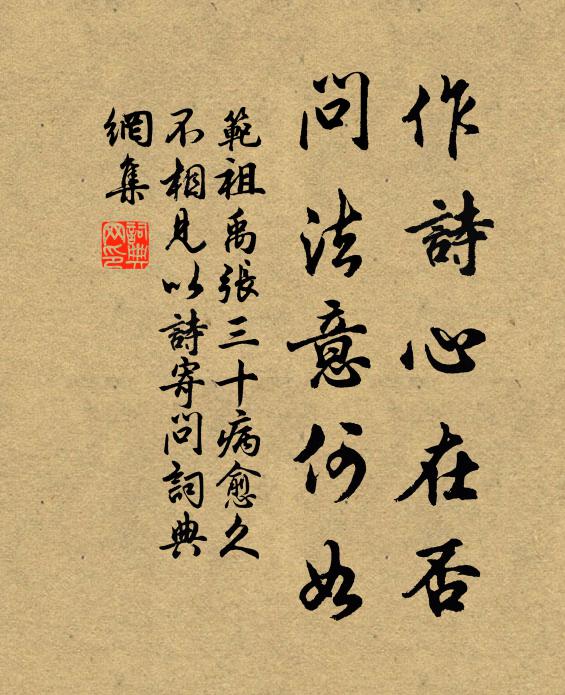 作詩心在否
問法意何如
範祖禹張三十病愈久
不相見以詩寄問詞典
網集
詞典網印